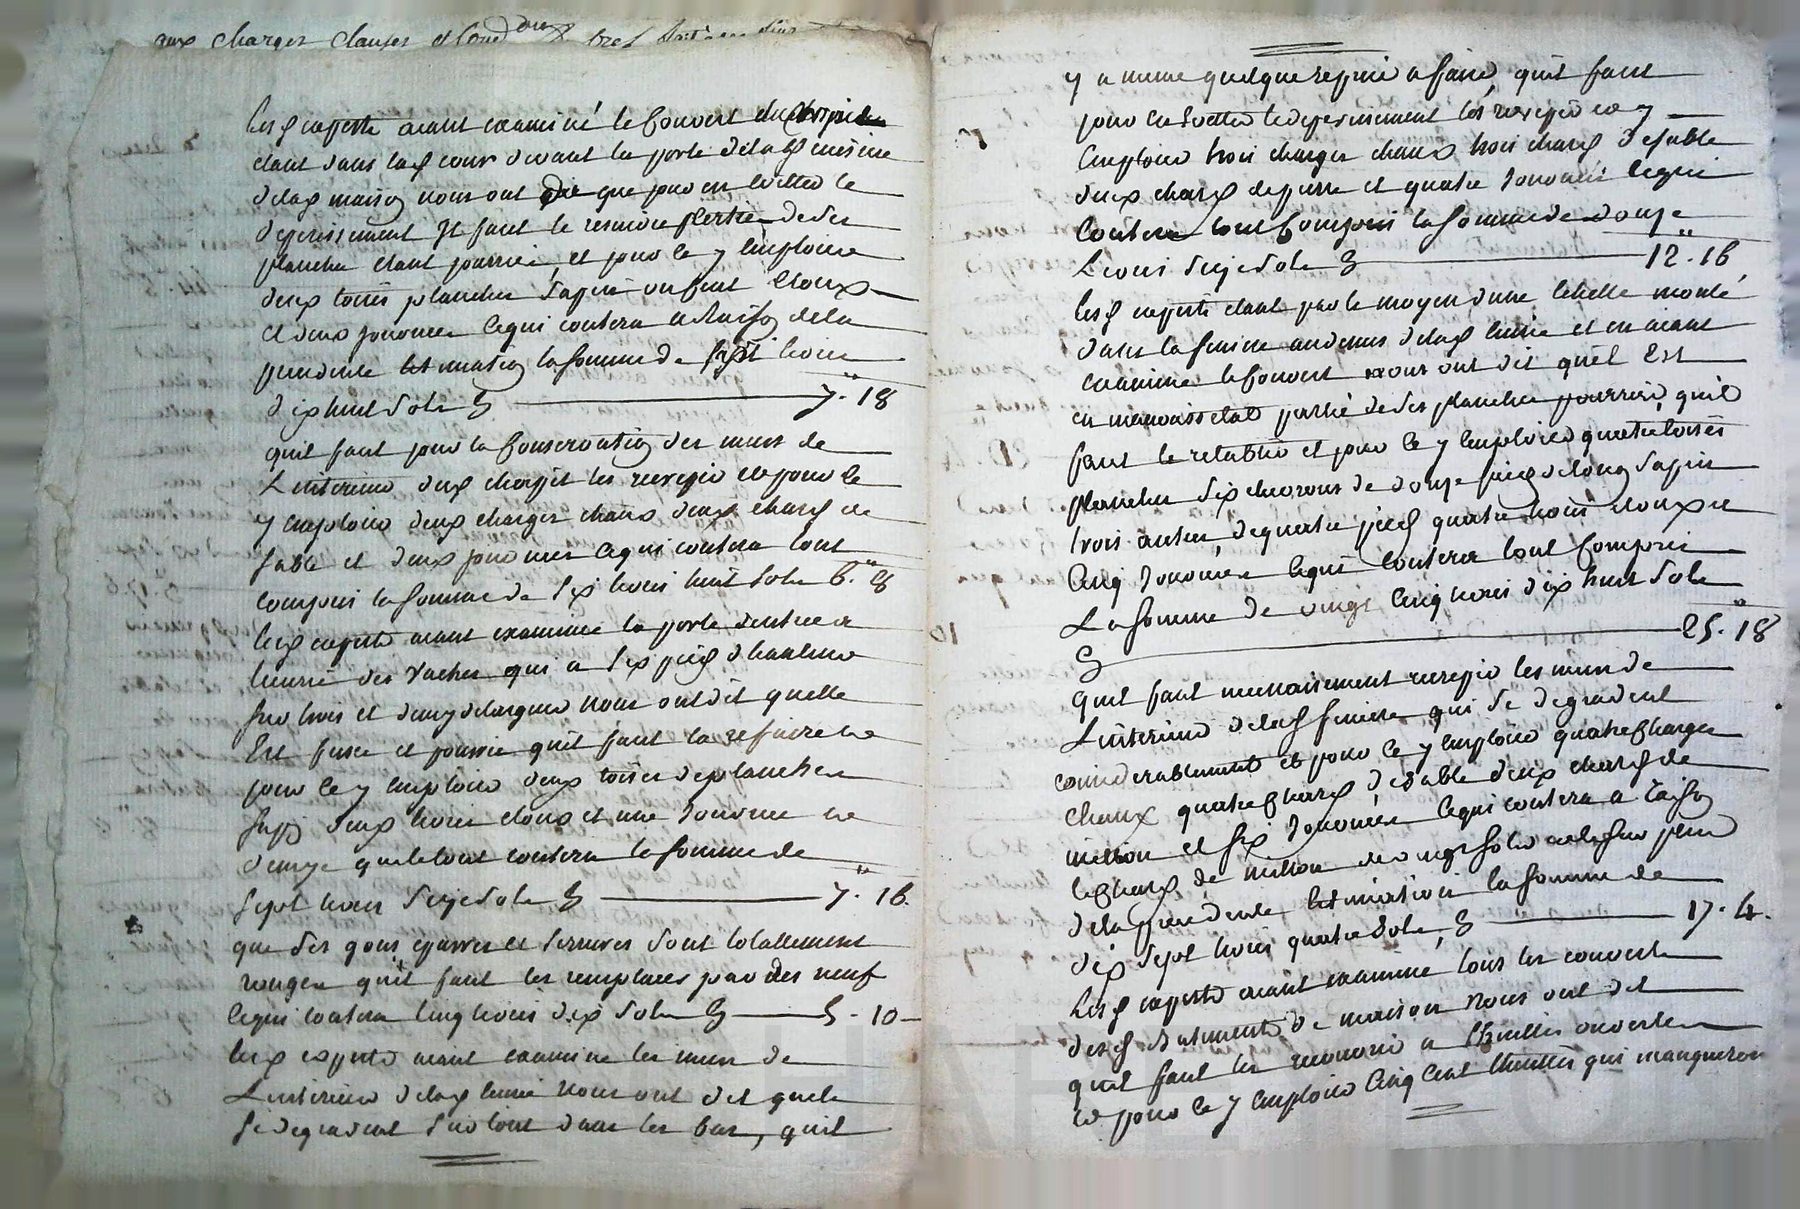 aux charges clauses et
les d experts aiant examiné le couvert
etant dans lad cour devant la porte delad cuisine
delad maison nous ont que pour en eviter le
deperissement Il faut le partie de des
planches etant pourries, et pour ce y emploier
deux toises planches sapin
et deux journées cequi coutera a raison dela
precedente estimation la somme de sept livres
dix huit sols 7 . 18
quil faut pour la conservation des murs de
L interieur les recrepir et pour ce
y emploier deux charges chaux deux charg de
sable et deux journées cequi coutera tout
compris la somme de six livres huit sols 6. 8
lesd experts aiant examinée la porte dentrée a
lecurie des vaches qui a six pieds dhauteur
sur trois et demy delargeur nous ont dit quelle
Est fusée et pourrie quil faut la refaire
pour ce y emploier deux toises deplanches
sapin deux livres cloux et une journée
que le tout coutera la somme de
sept livres seize sols 7 . 16
que ses gons eparres et serrures sont totallement
rongés quil faut les remplacer par des neuf
cequi coutera cinq livres dix sols 5 . 10
lesd experts aiant examiné les murs de
L interieur delad ecurie nous ont dit quils
se degradent surtout dans les bas, quil
y a meme quelque reprise a faire, quil faut
pour en eviter le deperissement les recrepir
emploier trois charges chaux trois charg de sable
deux charg de pierre et quatre journées cequi
coutera tout compris la somme de douze
Livres seize sols 12 . 16
lesd experts etant par le moyen dune echelle monté
dans la feniere au dessus delad ecurie et en aiant
examiné le couvert nous ont dit quil Est
en mauvais etat partie de ses planches pourries, quil
faut le retablir et pour ce y emploier quatre toises
planches six chevrons de douze pieds de long sapin
trois autres de quatre pieds quatre livres cloux et
cinq journées cequi coutera tout compris
La somme de vingt cinq livres dix huit sols
25 . 18
quil faut necessairement recrepir les murs de
L interieur delad feniere qui se degradent
considerablement et pour ce y emploier quatre charges
chaux quatre charg de sable deux charg de
et six journées cequi coutera a raison
dela precedente estimation la somme de
dix sept livres quatre sols 17 . 4 .
lesd experts aiant examiné tous les couverts
desd batiments de maison nous ont dit
quil faut les a thuilles ouvertes
et pour ce y emploier cinq cent thuilles qui manqueront